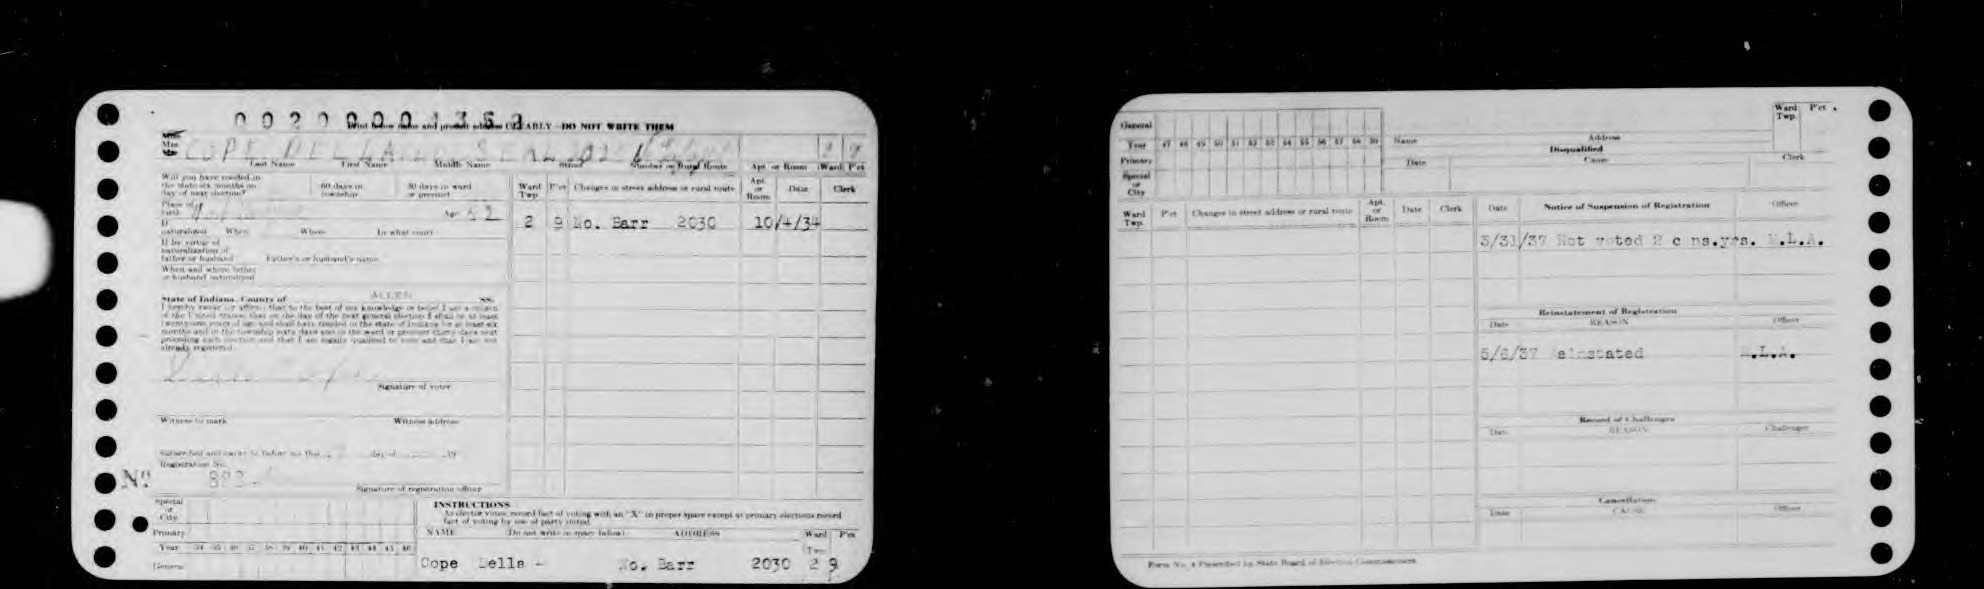 Print below name and present address CLEARLY—DO NOT WRITE THEM
Miss
Mrs.
Mr.
COPE
Last Name First Name Middle Name Street Number or Rural Route Apt. or Room Ward P'ct
Will you have resided in the state six months on day of next election? 60 days in township 30 days in ward or precinct
Place of birth Age 52
If naturalized When Where In what court
If by virtue of naturalization of father or husband Father's or husband's name
When and where father or husband naturalized
State of Indiana, County of ALLEN ss.
I hereby swear (or affirm) that to the best of my knowledge or belief I am a citizen
of the United States; that on the day of the next general election I shall be at least
twenty-one years of age and shall have resided in the state of Indiana for at least six
months and in the township sixty days and in the ward or precinct thirty days next
preceding such election and that I am legally qualified to vote and that I am not
already registered.
Signature of voter
Witness to mark Witness address
Subscribed and sworn to before me this day of 19
Registration No.
No
Signature of registration officer
Ward Twp. P'ct Changes in street address or rural route Apt. or Room Date Clerk
2 9 No. Barr 2030 10/4/34
Special or City
Primary
Year 34 35 36 37 38 39 40 41 42 43 44 45 46
General
INSTRUCTIONS
As elector votes, record fact of voting with an "X" in proper space except at primary elections record
fact of voting by use of party voted.
NAME (Do not write in space below) ADDRESS Ward Twp. P'ct
Cope Della - No. Barr 2030 2 9
General
Year 47 48 49 50 51 52 53 54 55 56 57 58 59
Primary
Special or City
Name Address Ward Twp. P'ct
Disqualified
Date Cause Clerk
Ward Twp. P'ct Changes in street address or rural route Apt. or Room Date Clerk
Date Notice of Suspension of Registration Officer
3/31/37 Not voted 2 c ns.yrs. M.L.A.
Reinstatement of Registration
Date REASON Officer
5/6/37 einstated M.L.A.
Record of Challenges
Date REASON Challenger
Cancellation
Date CAUSE Officer
Form No. 4 Prescribed by State Board of Election Commissioners